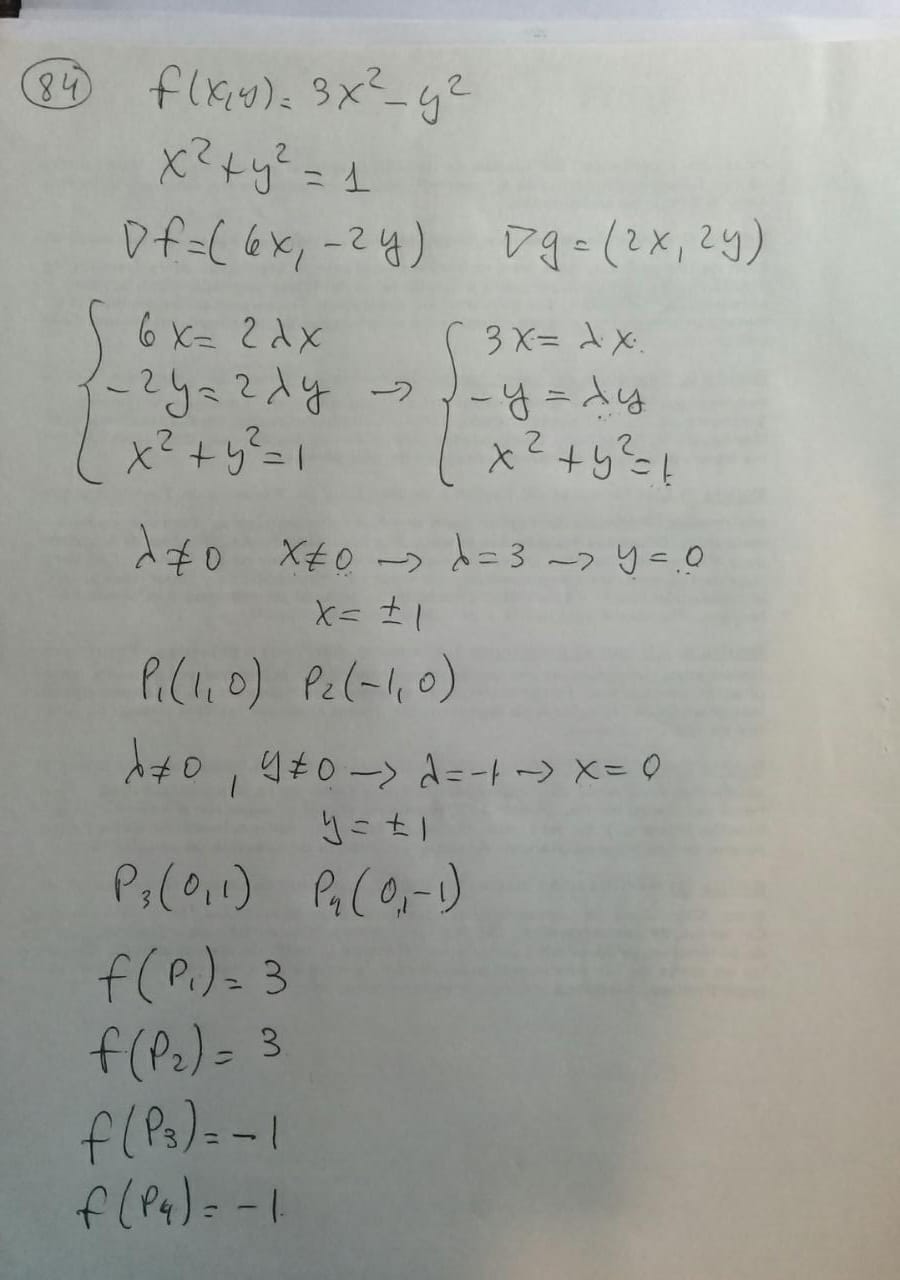 84 f(x,y)= 3x²-y²
x²+y²=1
∇f=(6x, -2y) ∇g=(2x, 2y)
{ 6x= 2λx { 3x= λx.
-2y=2λy → -y=λy
x²+y²=1 x²+y²=1
λ≠0 x≠0 → λ=3 → y=0
x= ±1
P₁(1,0) P₂(-1,0)
λ≠0, y≠0 → λ=-1 → x=0
y= ±1
P₃(0,1) P₄(0,-1)
f(P₁)= 3
f(P₂)= 3
f(P₃)= -1
f(P₄)= -1.